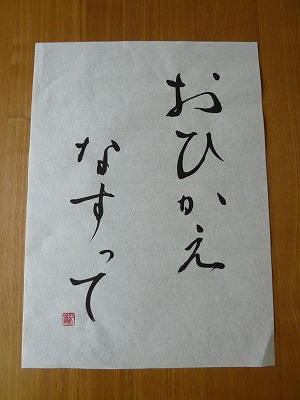 おひかえ
なすって